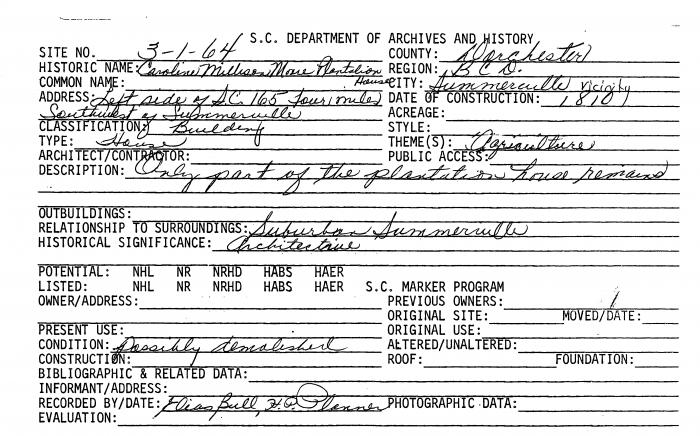 S.C. DEPARTMENT OF ARCHIVES AND HISTORY
SITE NO. 3-1-64 COUNTY: Dorchester
HISTORIC NAME: Caroline Plantation House REGION: B.C.D.
COMMON NAME: CITY: Summerville Vicinity
ADDRESS: Left side of S.C. 165 four miles Southwest of Summerville DATE OF CONSTRUCTION: 1810
ACREAGE:
CLASSIFICATION: Building STYLE:
TYPE: House THEME(S): Agriculture
ARCHITECT/CONTRACTOR: PUBLIC ACCESS:
DESCRIPTION: Only part of the plantation house remains
OUTBUILDINGS:
RELATIONSHIP TO SURROUNDINGS: Suburban Summerville
HISTORICAL SIGNIFICANCE: Architecture
POTENTIAL: NHL NR NRHD HABS HAER
LISTED: NHL NR NRHD HABS HAER S.C. MARKER PROGRAM
OWNER/ADDRESS: PREVIOUS OWNERS:
ORIGINAL SITE: MOVED/DATE:
PRESENT USE: ORIGINAL USE:
CONDITION: Possibly demolished ALTERED/UNALTERED:
CONSTRUCTION: ROOF: FOUNDATION:
BIBLIOGRAPHIC & RELATED DATA:
INFORMANT/ADDRESS:
RECORDED BY/DATE: Elias Bull, H.P. Planner PHOTOGRAPHIC DATA:
EVALUATION: